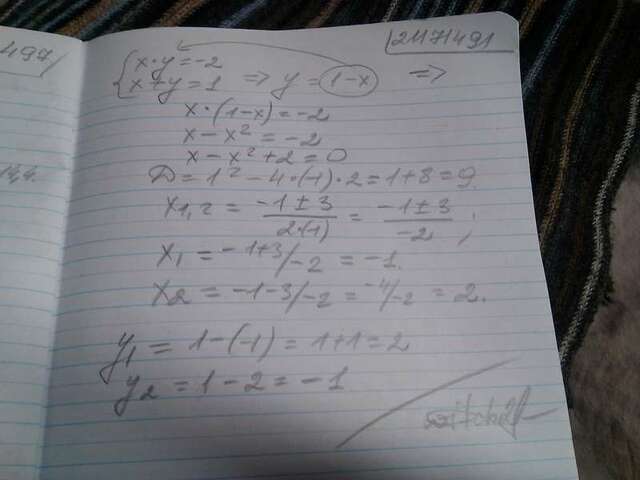 497
21171491
{ x·y = -2
x+y = 1 => y = 1-x =>
x·(1-x) = -2
x - x² = -2
x - x² + 2 = 0
D = 1² - 4·(-1)·2 = 1+8 = 9
x1,2 = -1±3/2·(-1) = -1±3/-2 ;
x1 = -1+3/-2 = -1.
x2 = -1-3/-2 = -4/-2 = 2.
y1 = 1-(-1) = 1+1 = 2
y2 = 1-2 = -1